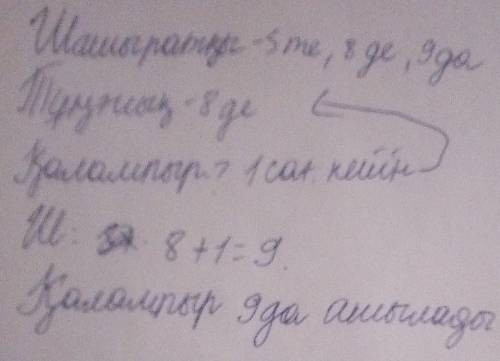 Шашыратқы - 5 те, 8 де, 9 да
Тұңғиық - 8 де
Қалампыр - ? 1 сағ. кейін
Ш: 8 + 1 = 9.
Қалампыр 9 да ашылады